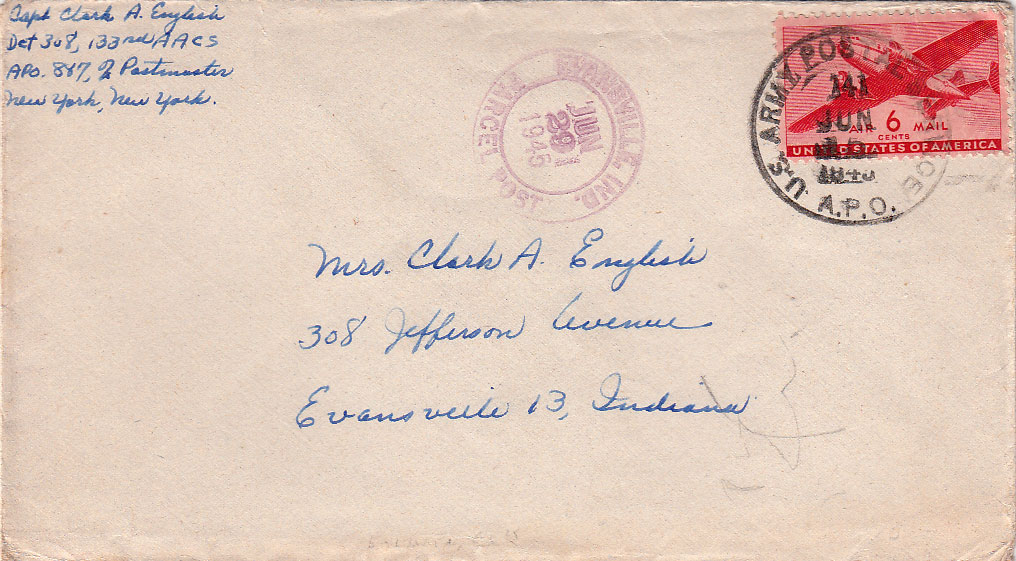 Capt Clark A. English
Det 308, 133rd AACS
APO. 887, % Postmaster
New York, New York.
EVANSVILLE, IND.
JUN
29
1945
PARCEL POST
U.S. ARMY POSTAL SERVICE
JUN
A.P.O.
AIR 6 MAIL
CENTS
UNITED STATES OF AMERICA
Mrs. Clark A. English
308 Jefferson Avenue
Evansville 13, Indiana